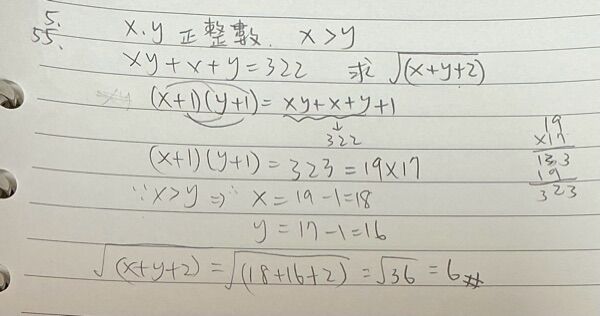 5.
55. x.y 正整數. x>y
xy+x+y=322 求 √(x+y+2)
(x+1)(y+1)=xy+x+y+1
↓
322
(x+1)(y+1)=323=19x17
∵x>y ⇒ ∴ x=19-1=18
y=17-1=16
√(x+y+2)=√(18+16+2)=√36=6#
19
x17
133
19
323